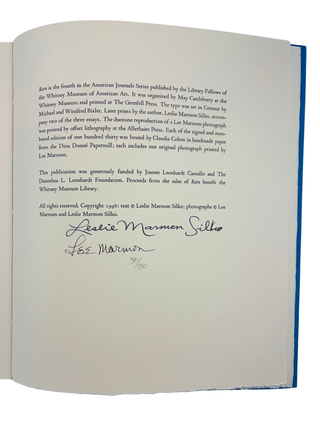 Rain is the fourth in the American Journals Series published by the Library Fellows of
the Whitney Museum of American Art. It was organized by May Castleberry at the
Whitney Museum and printed at The Grenfell Press. The type was set in Centaur by
Michael and Winifred Bixler. Laser prints by the author, Leslie Marmon Silko, accom-
pany two of the three essays. The duotone reproduction of a Lee Marmon photograph
was printed by offset lithography at the Allethaire Press. Each of the signed and num-
bered edition of one hundred thirty was bound by Claudia Cohen in handmade paper
from the Dieu Donné Papermill; each includes one original photograph printed by
Lee Marmon.
This publication was generously funded by Joanne Leonhardt Cassullo and The
Dorothea L. Leonhardt Foundation. Proceeds from the sales of Rain benefit the
Whitney Museum Library.
All rights reserved, Copyright 1996: text © Leslie Marmon Silko; photographs © Lee
Marmon and Leslie Marmon Silko.
Leslie Marmon Silko
Lee Marmon
/130